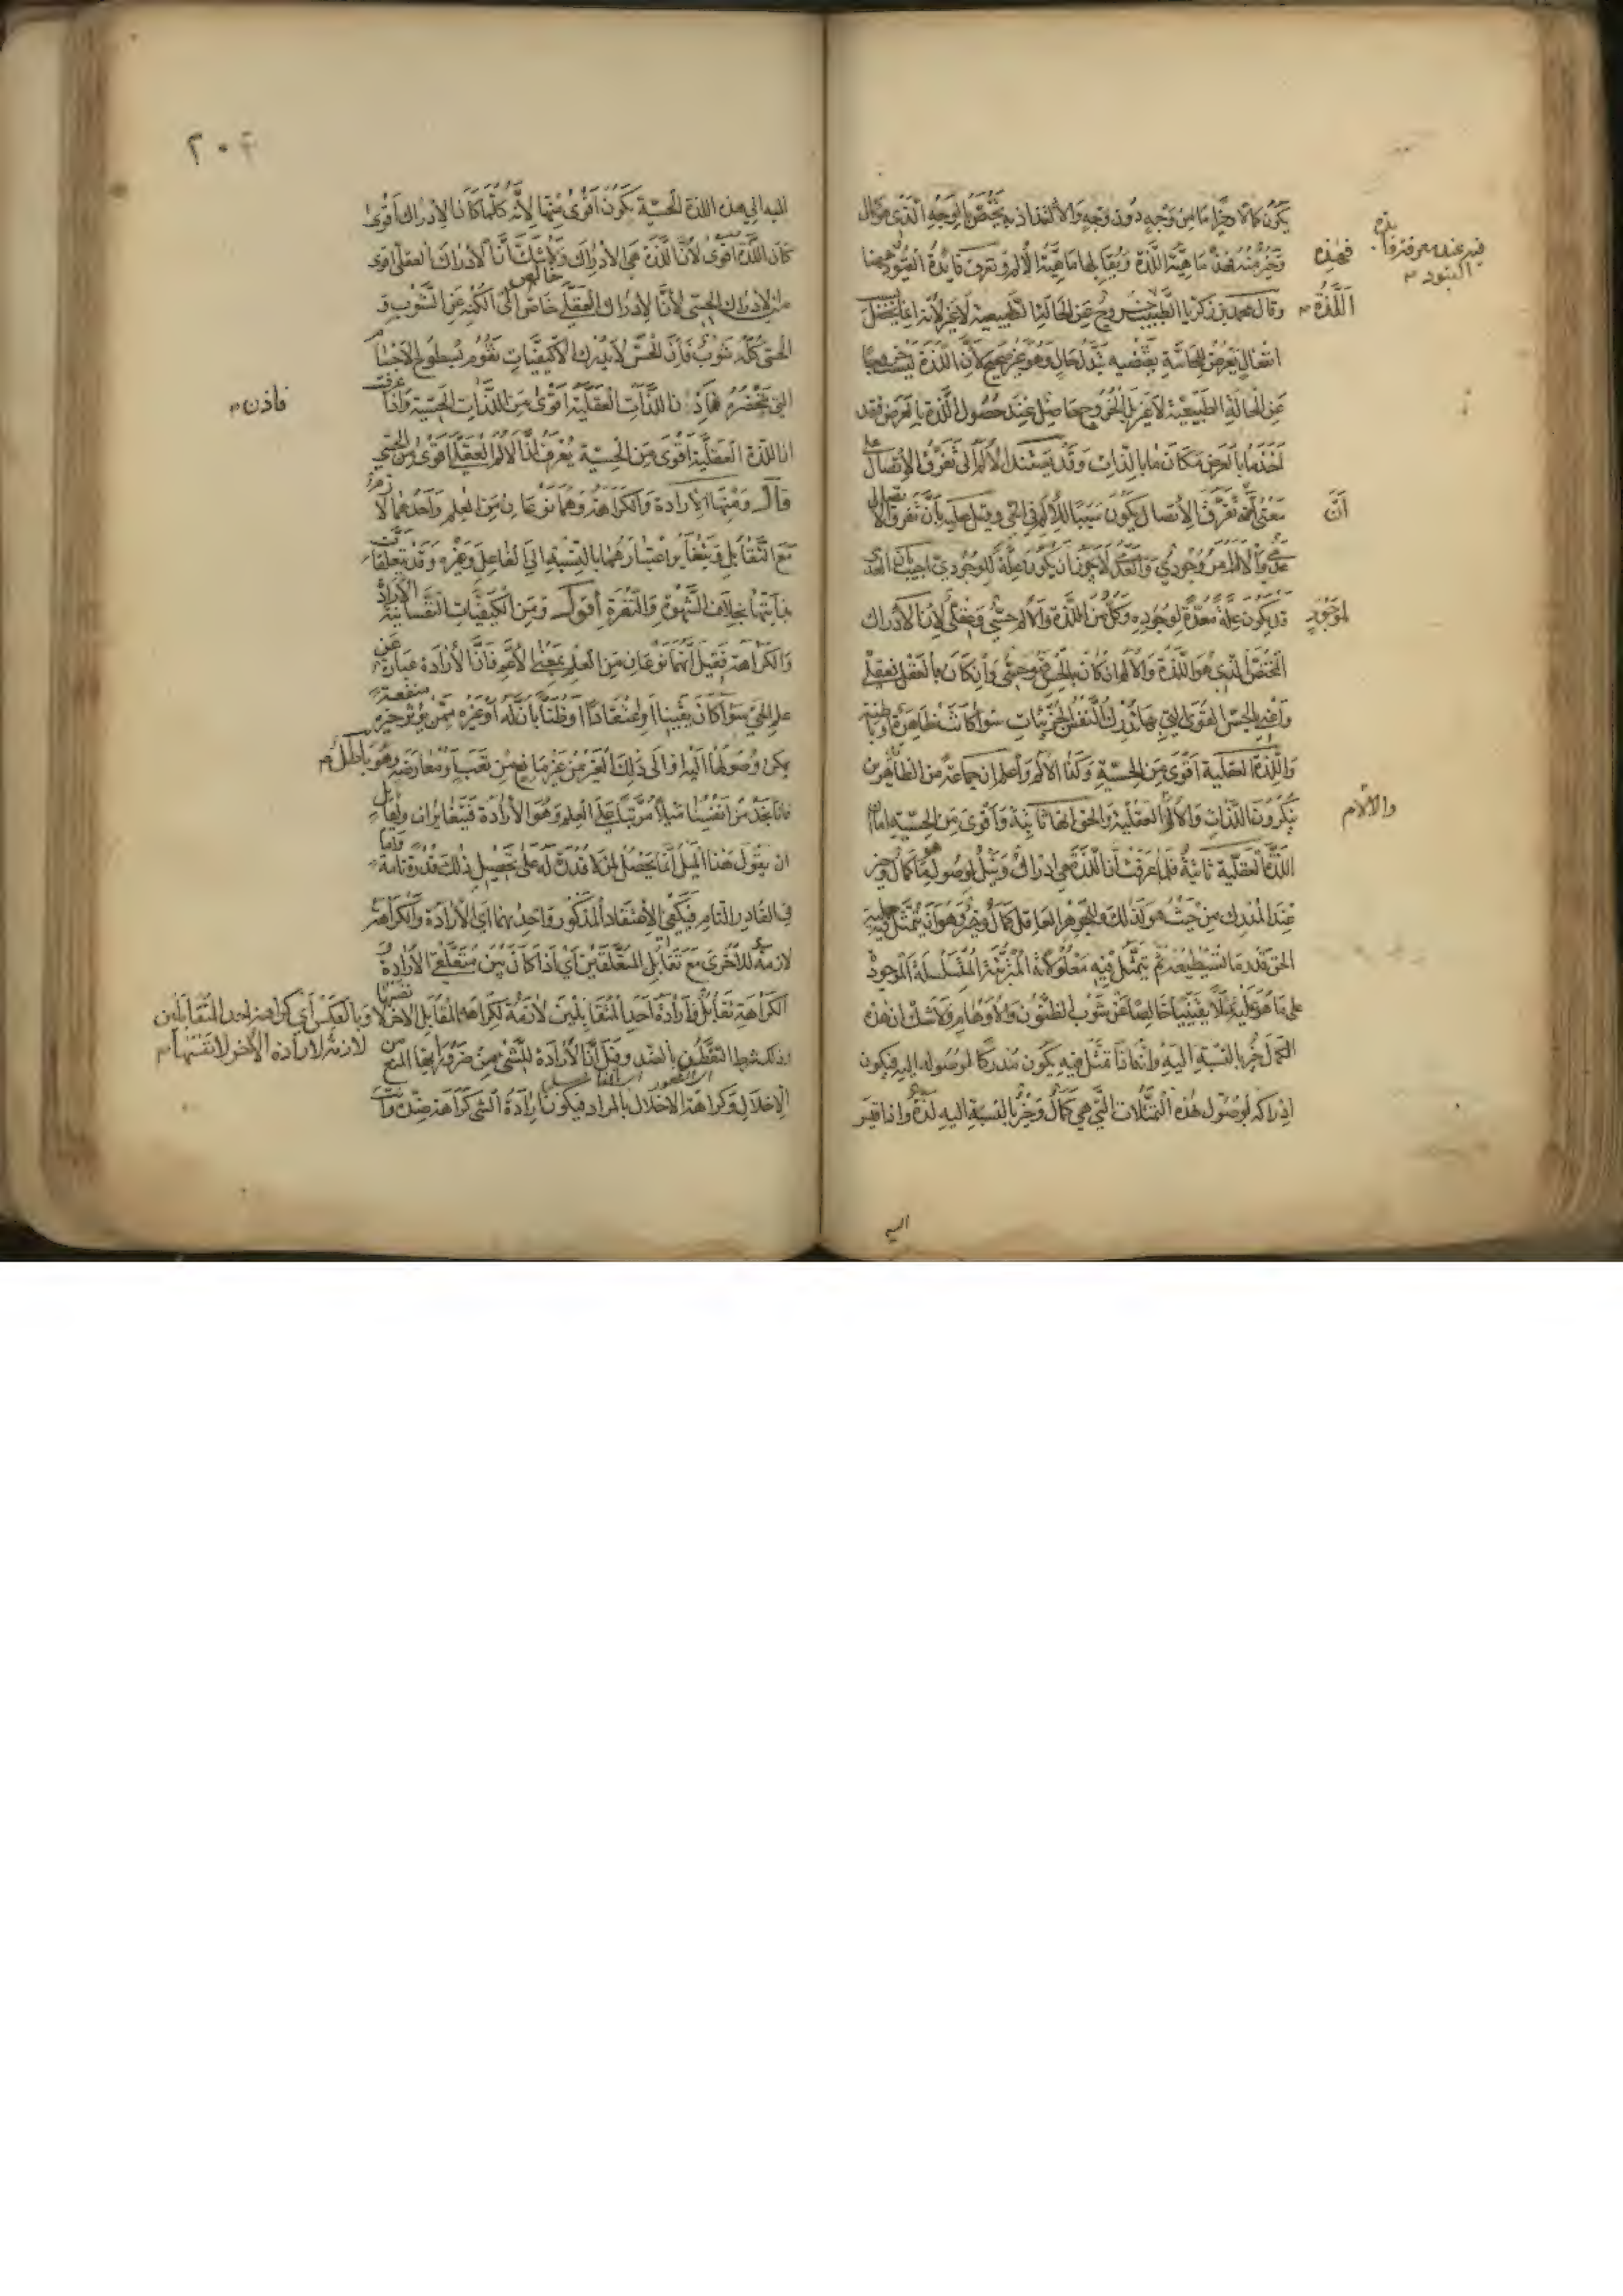 يكون كمالا وخيرا من وجه دون وجه والالتذاذ به يختص بالوجه الذي هو كمال
وخير منه فهذه ماهية اللذة ويقابلها ماهية الألم وتعرف فائدة القيود ههنا
وقال محمد بن زكريا الطبيب خروج عن الحالة الطبيعية لا غير لأنه انما يحصل
انفعال يعرض للحاسة يقتضيه تبدل حال وهو غير صحيح لأن اللذة ليست خروجا
عن الحالة الطبيعية لا غير بل الخروج حاصل عند حصول اللذة بالعرض فقد
أخذ ما بالعرض مكان ما بالذات وقد يستند الألم الى تفرق الاتصال على
معنى أن تفرق الاتصال يكون سببا للألم في الحي وقيل عليه بأن تفرق الاتصال
عدمي والألم أمر وجودي والعدم لا يجوز أن يكون علة للوجودي اجيب بأن العدمي
قد يكون علة معدة لوجود موجود وكل من اللذة والألم حسي وعقلي لأن الادراك
المختص الذي هو اللذة والألم ان كان بالحس فهو حسي وان كان بالعقل فعقلي
وأعني بالحس القوى التي بها تدرك النفس الجزئيات سواء كانت ظاهرة أو باطنة
واللذة العقلية أقوى من الحسية وكذا الألم وأعلم ان جماعة من الظاهرين
ينكرون اللذات والآلام العقلية والحق انها ثابتة وأقوى من الحسية اما ان
اللذة العقلية ثابتة فلما عرفت أن اللذة هي ادراك ونيل لوصول ما هو كمال وخير
عند المدرك من حيث هو كذلك وللجوهر العاقل كمال وخير وهو أن يتمثل فيه جلية
الحق قدر ما تستطيعه ثم يتمثل فيه معلولاته المترتبة المتسلسلة الموجود
على ما هو عليه تمثلا يقينيا خاليا عن شوب الظنون والأوهام ولا شك ان هذه
الكمال خير بالنسبة اليه وانها تتمثل فيه يكون مدركا لوصوله اليه فيكون
ادراكه لوصول هذه التمثلات التي هي كمال وخير بالنسبة اليه لذة واذا قيس
فهذه
اللذة
أن
موجود
والآلام
اليه الى هذه اللذة الحسية يكون أقوى منها لأنه كلما كان الادراك أقوى
كان اللذة أقوى لأن اللذة هي الادراك ولا شك أن الادراك العقلي أقوى
من الادراك الحسي لأن الادراك العقلي خالص الى الكنه عن الشوب و
الحسي كله شوب فان الحس لا يدرك الا كيفيات تقوم بسطوح الاجسام
التي تحضره فاذن اللذات العقلية أقوى من اللذات الحسية واذا عرفت
ان اللذة العقلية أقوى من الحسية يعرف أن الألم العقلي أقوى من الحسي
قال ومنها الارادة والكراهة وهما نوعان من العلم وأحدهما لازم
مع التقابل ويتغاير اعتبارهما بالنسبة الى الفاعل وغيره وقد يتعلقان
بذاتهما بخلاف الشهوة والنفرة أقول ومن الكيفيات النفسانية الارادة
والكراهة فقيل انهما نوعان من العلم بمعنى الأعم فان الارادة عبارة عن
علم الحي سواء كان يقينا أو اعتقادا أو ظنا بأن له أو غيره ممن يؤثر خيره منفعة
يمكن وصولها اليه أو الى ذلك الغير من غير مانع من تعب أو معارضة وهو باطل
فانا نجد من أنفسنا ميلا مرتبا على العلم وهو الارادة فيتغايران ولقائل
ان يقول هذا الميل انما يحصل لمن لا قدرة له على تحصيل ذلك قدرة تامة واما
في القادر التام فيكفي الاعتقاد المذكور واحد منهما أي الارادة والكراهة
لازمة للأخرى مع تقابل المتعلقين أي اذا كان بين متعلقي الارادة و
الكراهة تقابل فارادة أحد المتقابلين لازمة لكراهة المقابل الآخر لا نفسها وبالعكس أي كراهة احد المتقابلين
لازمة لارادة الآخر لا نفسها
وذلك بشرط التفطن بالضد وقيل أن الارادة للشيء من ضرورتها المنع من
الاخلال وكراهة الاخلال بالمراد فيكون ارادة الشيء كراهة ضده
فاذن
اليه
٢٠٢